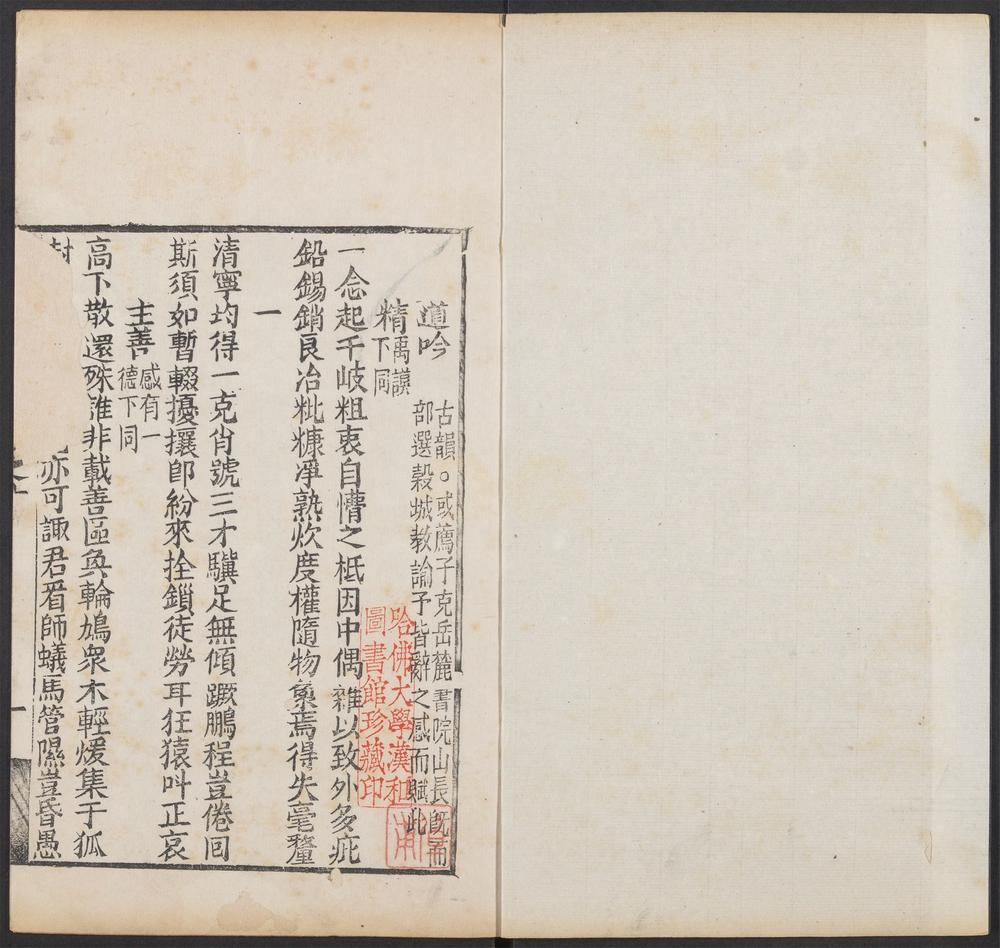 道吟
古韻○或薦子克岳麓書院山長旣而
部選穀城教諭予皆辭之感而賦此
精
禹謨
下同
一念起千岐粗衷自慒之柢因中偶雜以致外多疵
鉛錫銷良冶粃糠淨熟炊度權隨物象焉得失毫釐
一
清寧均得一克肖號三才驥足無傾蹶鵬程豈倦回
斯須如暫輟擾攘卽紛來拴鎖徒勞耳狂猿叫正哀
主善
感有一
德下同
高下散還殊誰非載善區奐輪鳩衆木輕煖集于狐
亦可諏君看師蟻馬管隰豈昏愚
一
哈佛大學漢和
圖書館珍藏印